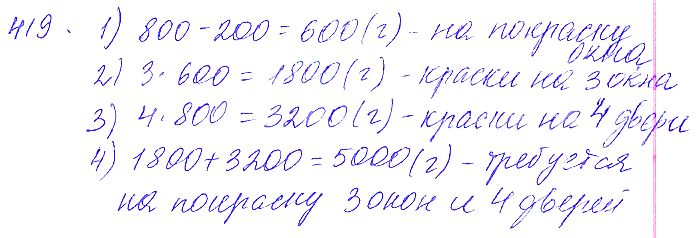 419. 1) 800 - 200 = 600 (г) - на покраску окна
2) 3 · 600 = 1800 (г) - краски на 3 окна
3) 4 · 800 = 3200 (г) - краски на 4 двери
4) 1800 + 3200 = 5000 (г) - требуется
на покраску 3 окон и 4 дверей